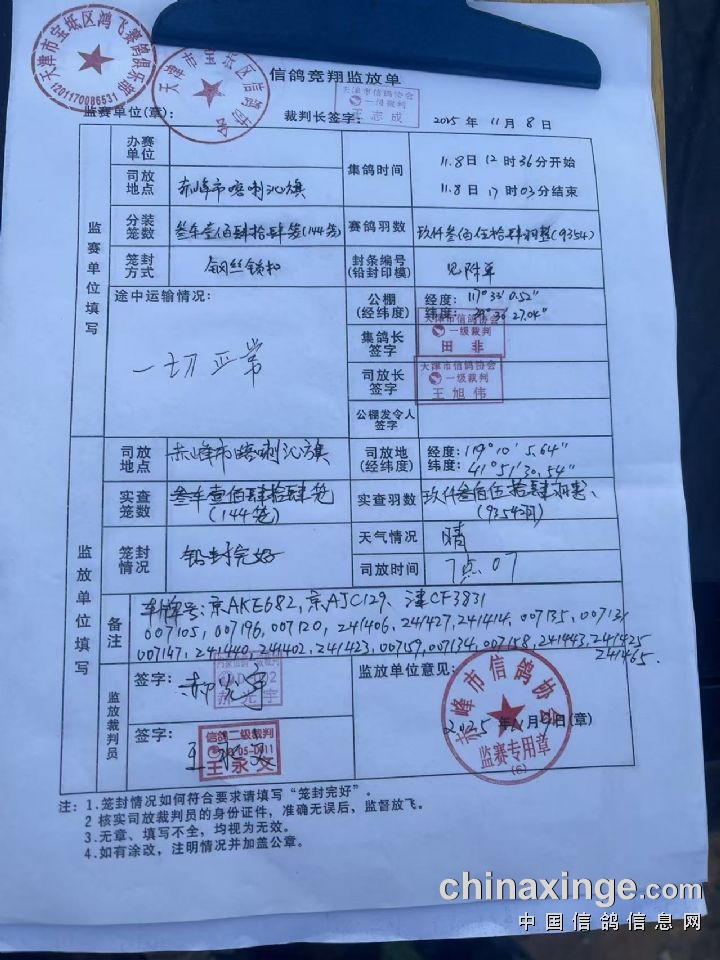 天津市宝坻区鸿飞赛鸽俱乐部
1201170086531
天津市宝坻区信鸽协会
信鸽竞翔监放单
监赛单位(章):
裁判长签字:
天津市信鸽协会
一级裁判
王志成
2025 年 11 月 8 日
监赛单位填写
办赛单位
集鸽时间
11.8日 12 时36分开始
11.8日 17 时03分结束
司放地点
赤峰市喀喇沁旗
分装笼数
叁车壹佰肆拾肆笼(144笼)
赛鸽羽数
玖仟叁佰伍拾肆羽整(9354)
笼封方式
钢丝锁扣
封条编号(铅封印模)
见附单
途中运输情况:
一切正常
公棚(经纬度)
经度: 117° 33′ 0.52″
纬度: 39° 36′ 27.04″
集鸽长签字
天津市信鸽协会
一级裁判
田非
司放长签字
天津市信鸽协会
一级裁判
王旭伟
公棚发令人签字
监放单位填写
司放地点
赤峰市喀喇沁旗
司放地(经纬度)
经度: 119° 10′ 5.64″
纬度: 41° 51′ 30.54″
实查笼数
叁车壹佰肆拾肆笼
(144笼)
实查羽数
玖仟叁佰伍拾肆羽整
(9354羽)
笼封情况
铅封完好
天气情况
晴
司放时间
7点07
备注
车牌号:京AKE682,京AJC129、津CF3831
007105, 007196, 007120, 241406, 241427, 241414, 007135, 007131
007147, 241440, 241402, 241423, 007159, 007134, 007158, 241443, 241425
241465.
监放裁判员
签字:
郝光宇
郝光宇
签字:
王永文
信鸽二级裁判
王永文
监放单位意见:
赤峰市信鸽协会
监赛专用章
(6)
2025 年 11 月 9 日(章)
注: 1.笼封情况如何符合要求请填写“笼封完好”。
2 核实司放裁判员的身份证件，准确无误后，监督放飞。
3.无章、填写不全，均视为无效。
4.如有涂改，注明情况并加盖公章。
chinaxinge.com
中国信鸽信息网